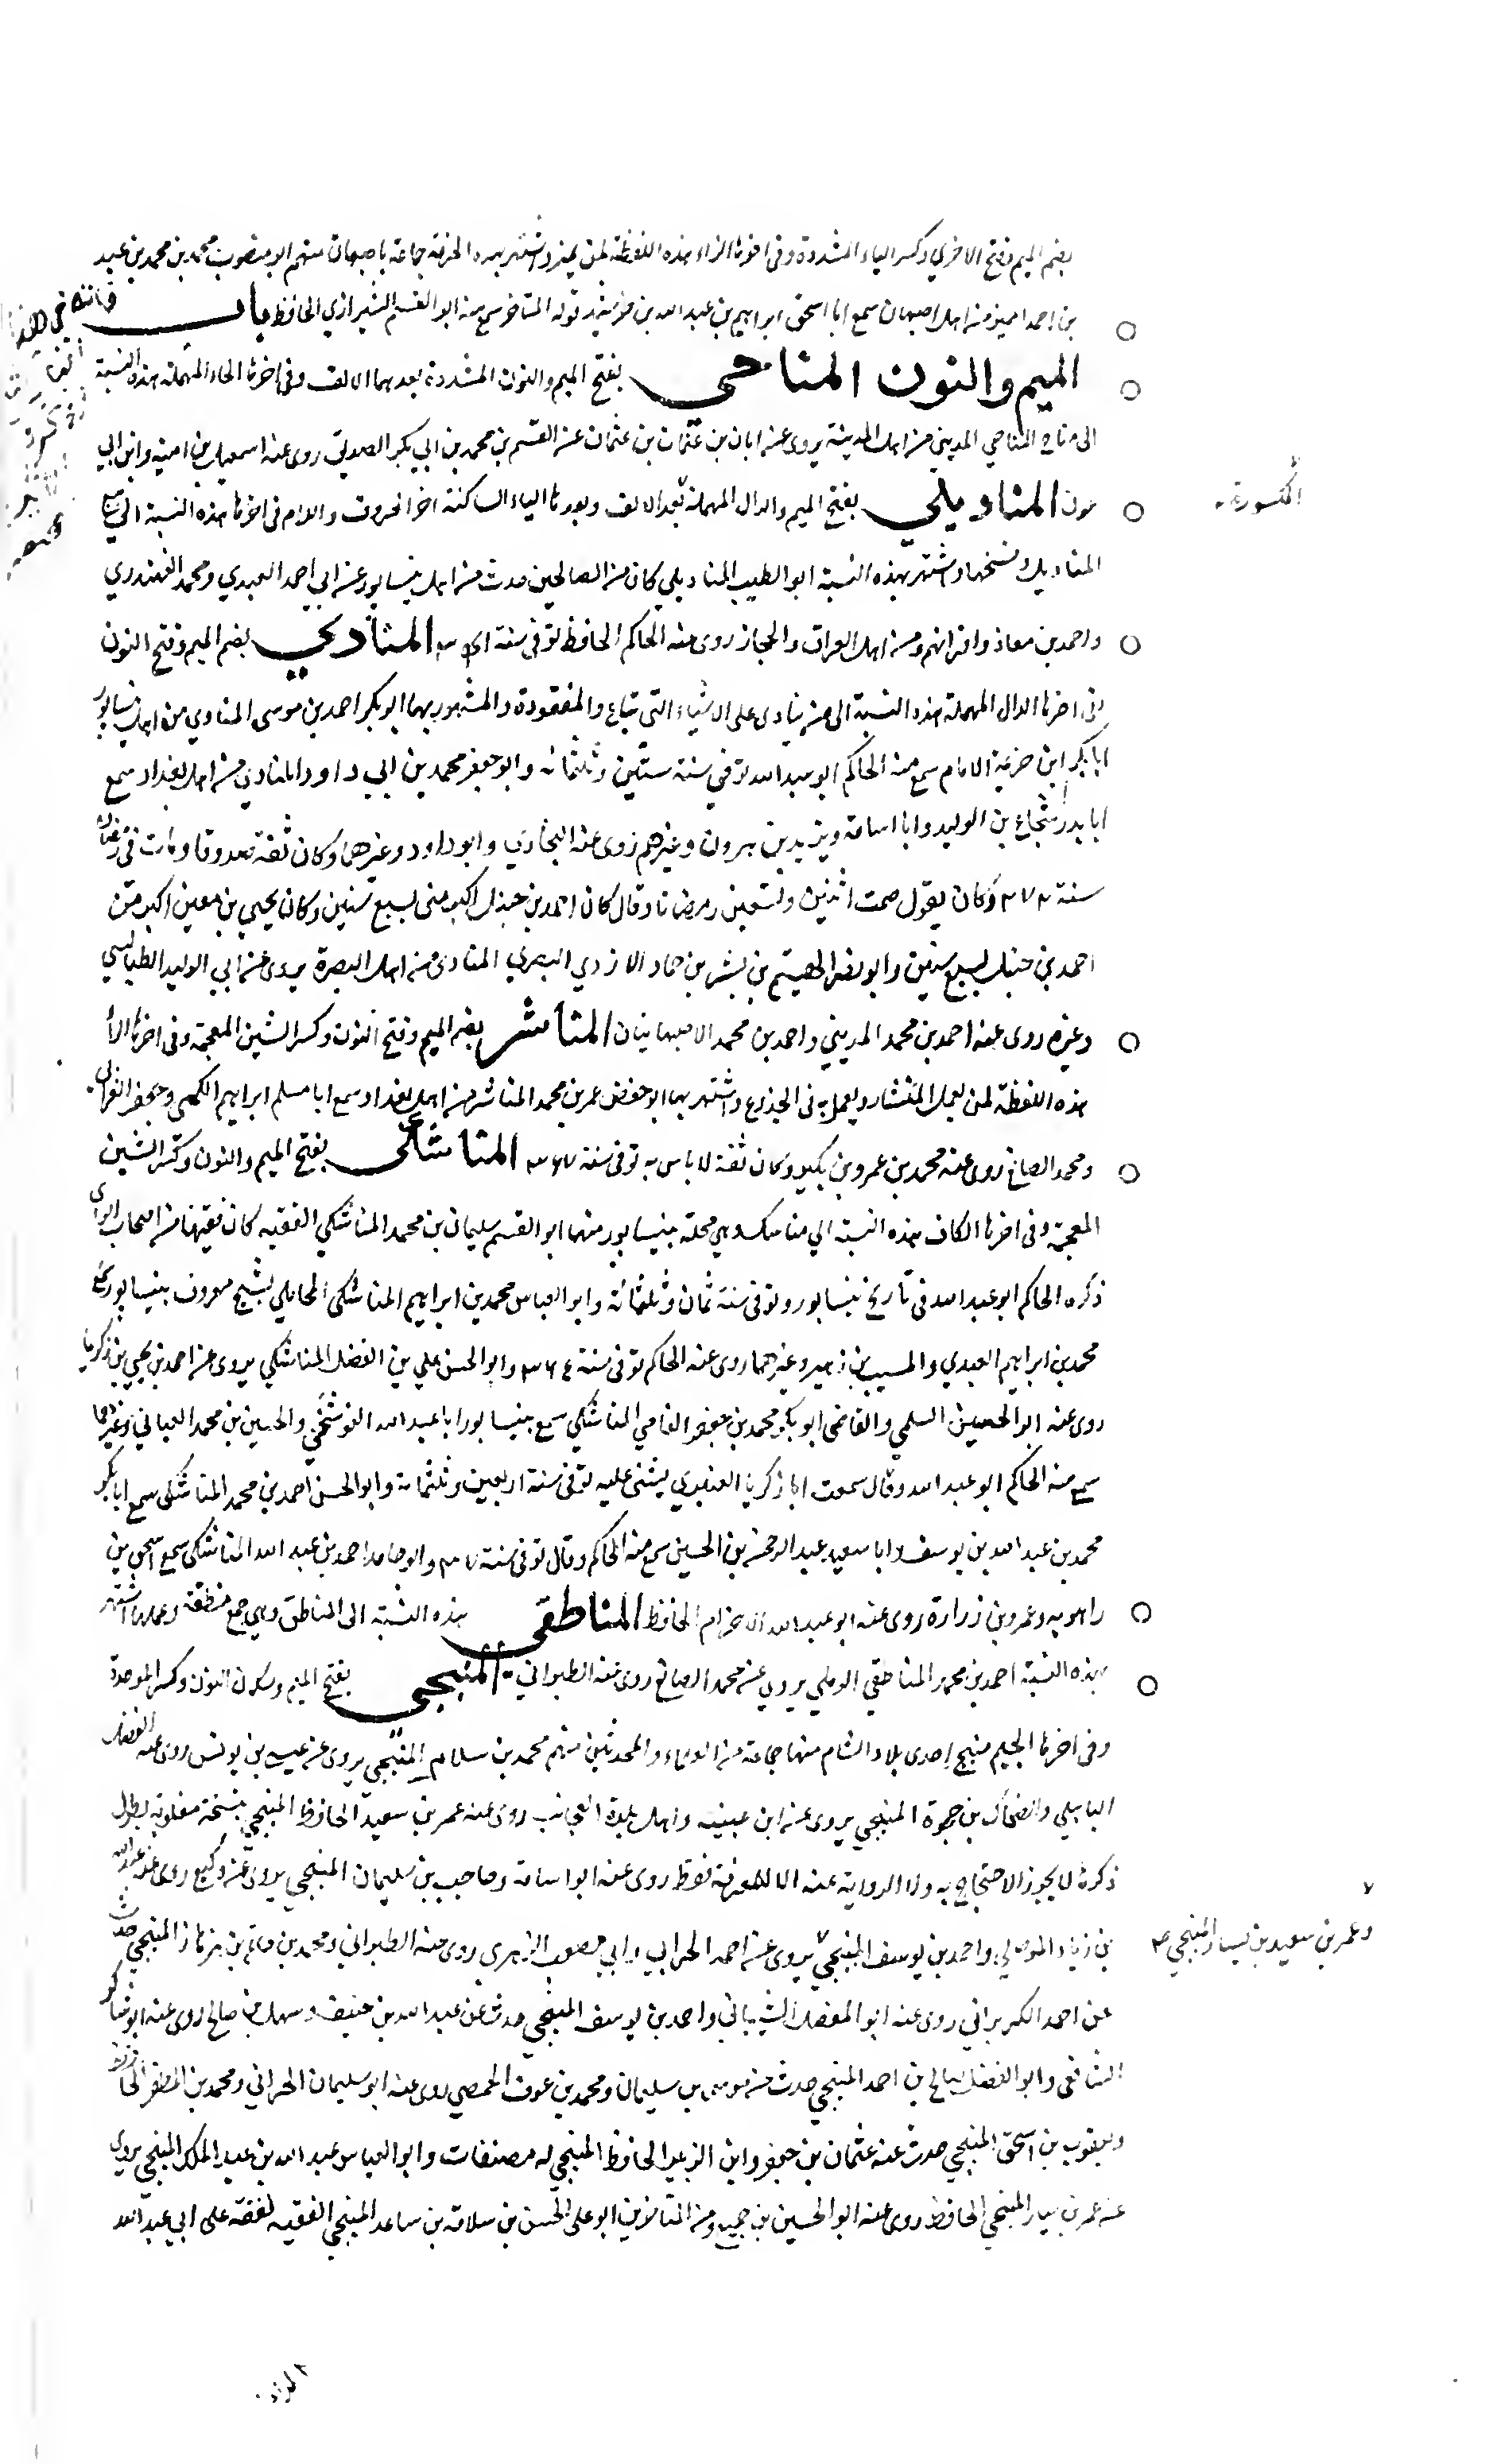 بضم الميم وفتح الاخري وكسر الياء المشددة وفى اخرها الزاء هذه اللفظة لمن يميز واشتهر بهذه الحرفة جماعة باصبهان منهم ابو منصور محمد بن محمد بن عبد
بن احمد المميز من اهل اصبهان سمع ابا اسحق ابراهيم بن عبد الله بن خرشيذ قوله التاجر سمع منه ابو القسم الشيرازي الحافظ باب
الميم والنون المناحى بفتح الميم والنون المشددة بعدهما الالف وفى اخرها الحاء المهملة هذه النسبة
الى مناح المناحي المديني من اهل المدينة يروى عن ابان بن عثمان بن عثمان عن القسم بن محمد بن ابي بكر الصديق روى عنه اسمعيل بن امية وابن ابي
عون المناديلي بفتح الميم والدال المهملة بعد الالف وبعدها الياء الساكنة اخر الحروف واللام فى اخرها هذه النسبة الى بيع
المناديل ونسجها واشتهر بهذه النسبة ابو الطيب المناديلي كان من الصالحين حدث من اهل نيسابور عن ابي احمد العبدي ومحمد القهندزي
واحمد بن معاذ واقرانهم ومن اهل العراق والحجاز روى عنه الحاكم الحافظ توفى سنة المنادي بضم الميم وفتح النون
وفى اخرها الدال المهملة هذه النسبة الى من ينادى على الاشياء التى تباع والمفقودة والمشهور بهما ابو بكر احمد بن موسى المنادي من اهل نيسابور
ابا بكر ابن خزيمة الامام سمع منه الحاكم ابو عبد الله توفي سنة ستين وثلثمائة وابو جعفر محمد بن ابي داود المنادي من اهل بغداد سمع
ابا بدر شجاع بن الوليد وابا اسامة ويزيد بن هرون وغيرهم روى عنه البخاري وابو داود وغيرهما وكان ثقة صدوقا ومات فى رمضان
سنة ٢٧٢ وكان يقول صمت اثنين وتسعين رمضانا وقال كان احمد بن حنبل اكبر منى بسبع سنين وكان يحيى بن معين اكبر من
احمد بن حنبل بسبع سنين وابو نصر الهيثم بن بشر بن حماد الازدي البصري المنادى من اهل البصرة يروى عن ابي الوليد الطيالسي
وغيره روى عنه احمد بن محمد المديني واحمد بن محمد الاصبهانيان المناشر بضم الميم وفتح النون وكسر الشين المعجمة وفى اخرها الراء
هذه اللفظة لمن يعمل المنشار ويعمل به فى الجذوع واشتهر بها ابو حفص عمر بن محمد المناشر من اهل بغداد سمع ابا مسلم ابراهيم الكجى وجعفر الفريابى
ومحمد الصائغ روى عنه محمد بن عمرو بن بكير وكان ثقة لا باس به توفى سنة المناشكى بفتح الميم والنون وكسر الشين
المعجمة وفى اخرها الكاف هذه النسبة الي مناشك وهى محلة بنيسابور منها ابو القسم سليمان بن محمد المناشكي الفقيه كان فقيها من اصحاب الراى
ذكره الحاكم ابو عبد الله فى تاريخ نيسابور وتوفى سنة ثمان وثلثمائة وابو العباس محمد بن ابراهيم المناشكى المحاملي شيخ معروف بنيسابور سمع
محمد بن ابراهيم العبدي والمسيب بن زهير وغيرهما روى عنه الحاكم توفى سنة ٣٦٤ وابو الحسن علي بن الفضل المناشكي يروى عن احمد بن يحيى بن زكريا
روى عنه ابو الحسين السلمي والقاضى ابو بكر محمد بن جعفر القاضي المناشكي سمع بنيسابور ابا عبد الله البوشنجي والحسين بن محمد القبانى وغيرهما
سمع منه الحاكم ابو عبد الله وقال سمعت ابا زكريا العنبري يثنى عليه توفى سنة اربعين وثلثمائة وابو الحسن احمد بن محمد المناشكى سمع ابا بكر
محمد بن عبد الله بن يوسف وابا سعيد عبد الرحمن بن الحسين سمع منه الحاكم وقال توفى سنة وابو حامد احمد بن عبد الله المناشكى سمع اسحق بن
راهويه وعمرو بن زرارة روى عنه ابو عبد الله الاخرم الحافظ المناطقى هذه النسبة الى المناطق وهي جمع منطقة وعملها اشتهر
بهذه النسبة احمد بن محمد المناطقي الرملي يروي عن محمد الصائغ روى عنه الطبراني المنبجى بفتح الميم وسكون النون وكسر الموحدة
وفى اخرها الجيم منبج احدى بلاد الشام منها جماعة من العلماء والمحدثين منهم محمد بن سلام المنبجي يروى عن عيسى بن يونس روى عنه الفضل
الباهلي والضحاك بن حجوة المنبجي يروى عن ابن عيينه واهل بلدة العجائب روى عنه عمر بن سعيد الحافظ المنبجي نسخة مقلوبة يطول
ذكرها لا يجوز الاحتجاج به ولا الرواية عنه الا للمعرفة فقط روى عنه ابو اسامة وحاجب بن سليمان المنبجي يروى عن وكيع روى عنه عبد الله
بن زياد الموصلي واحمد بن يوسف المنبجي يروى عن احمد الحرانى وابي مصعب الزهرى روى عنه الطبراني ومحمد بن حاتم بن هزهاز المنبجي حدث
عن احمد الكريرانى روى عنه ابو المفضل الشيبانى واحمد بن يوسف المنبجي حدث عن عبد الله بن خبيق وسهل بن صالح روى عنه ابو شاكر
الشافعى وابو الفضل صالح بن احمد المنبجي حدث عن موسى بن سليمان ومحمد بن عوف الحمصي روى عنه ابو سليمان الحراني ومحمد بن المظفر الحافظ
ويعقوب بن اسحق المنبجي حدث عنه عثمان بن جعفر وابن الزبير الحافظ المنبجي له مصنفات وابو العباس عبد الله بن عبد الملك المنبجي يروى
عن عمر بن سيار المنبجى الحافظ روى عنه ابو الحسين بن جميع ومن المتاخرين ابو على الحسن بن سلامة بن ساعد المنبجي الفقيه تفقه على ابي عبد الله
المكسورة
وعمر بن سعيد بن يسار المنبجي